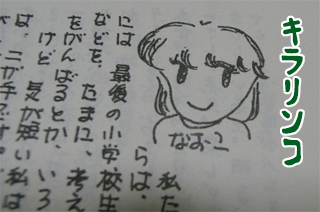 キラリンコ
なおこ
私た
らは、
には 最後の小学校生
などを、たまに、考え
をがんばるとか、いろ
けど 気が短い私は
は、ニガ手です。